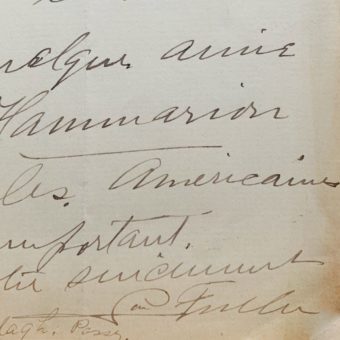 uelque amie
Flammarion
les. Américaines
important.
tié sincèrement
Fuller
Passy.